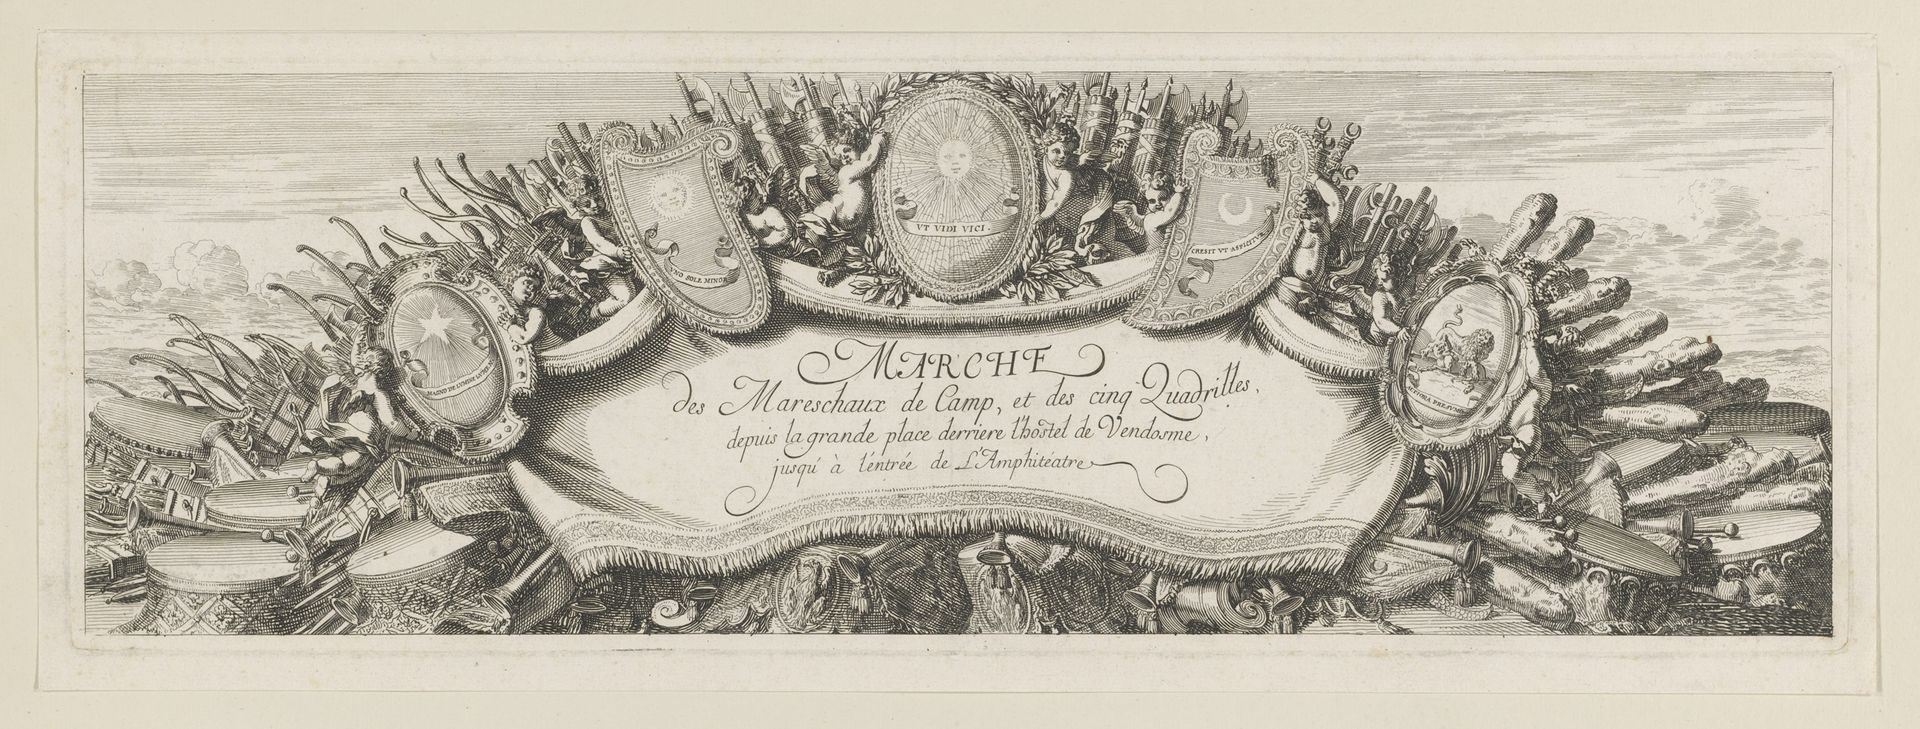 VT VIDI VICI.
VNO SOLE MINOR
CRESIT VT ASPICITVR
MAGNO DE LVMINE LVMEN
MARCHE
des Mareschaux de Camp, et des cinq Quadrilles,
depuis la grande place derriere l'hostel de Vendosme,
jusqu'à l'éntrée de L'Amphitéatre